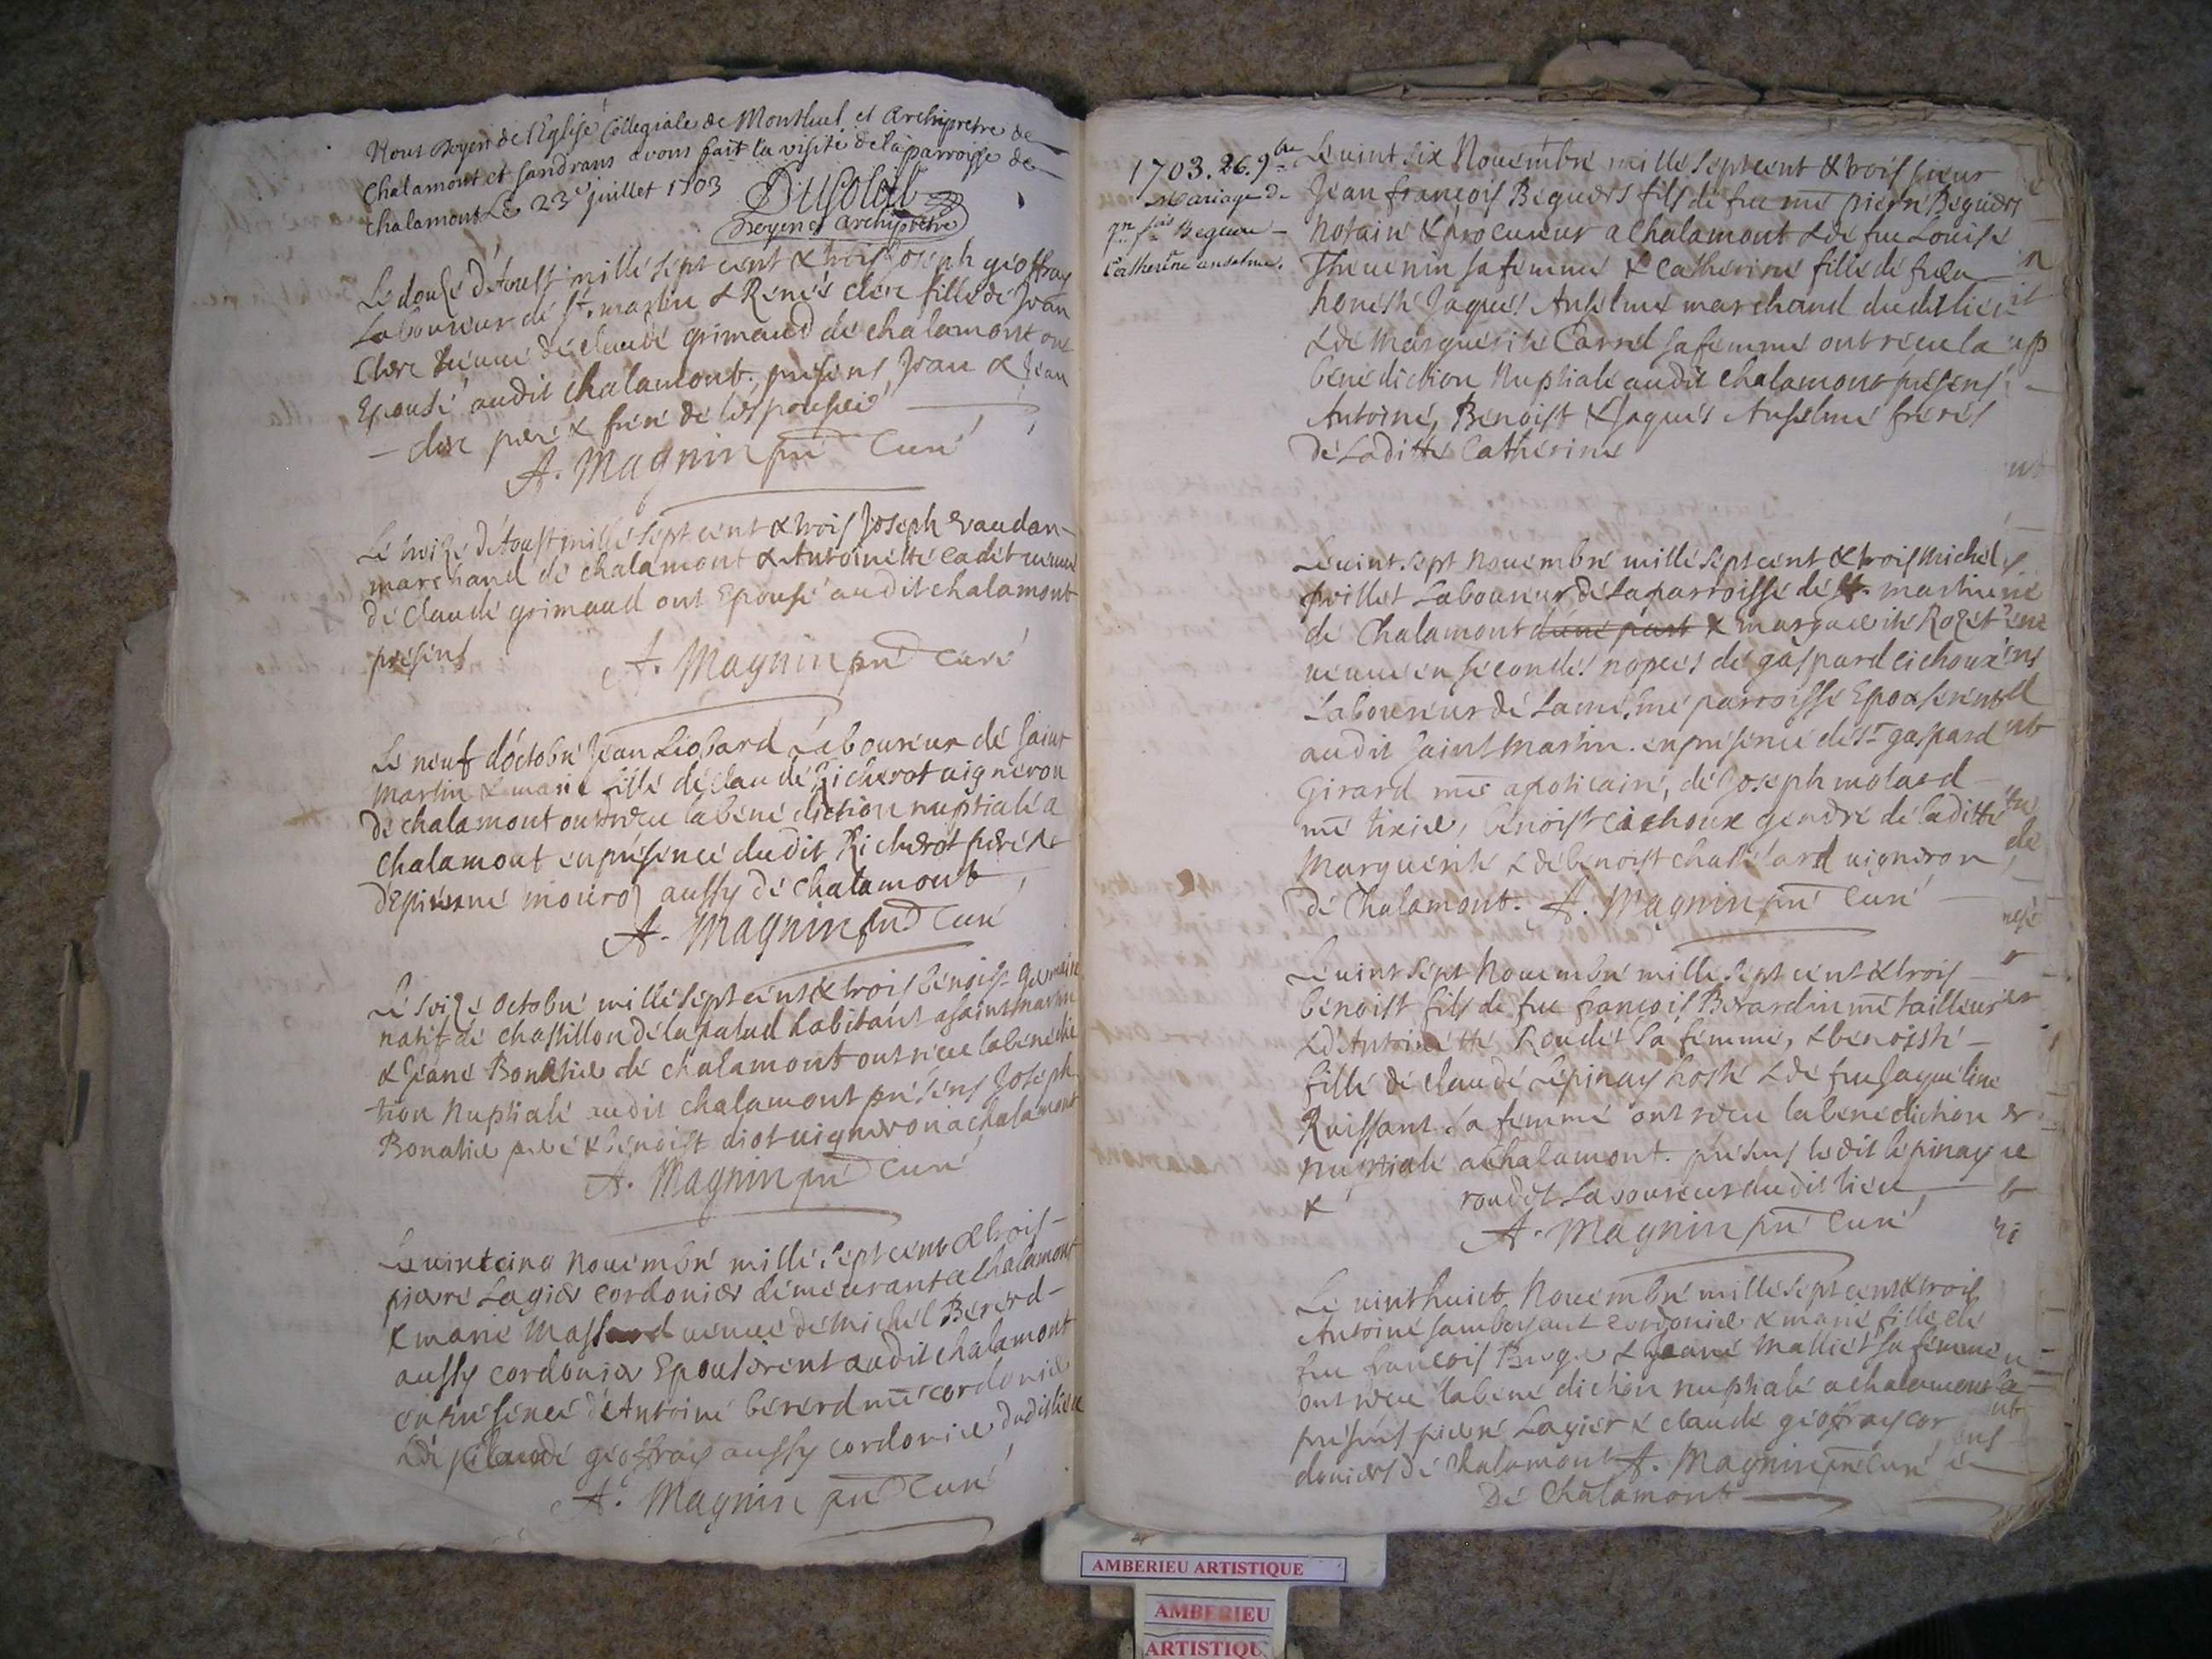 Nous Doyen de l'Eglise Collegiale de Montluel et Archipretre de
Chalamont et Sandrans avons fait la visite de la parroisse de
Chalamont Le 23e juillet 1703 Dusoleil
Doyen et Archipretre
Le douze d'Aoust mille sept cent & trois Joseph geoffray
Laboureur de st. martin & Renée clerc fille de Jean
Clerc veuve de claude grimaud de chalamont ont
Epousé audit chalamont. présens Jean & Jean
clerc pere & frere de lespousée
A. Magnin pre Curé
Le treize d'Aoust mille sept cent & trois Joseph vaudan
marchand de chalamont & Antoinette cadet veuve
de claude grimaud ont Epousé audit chalamont
présens A. Magnin pre Curé
Le neuf d'octobre Jean Liobard Laboureur de saint
Martin & marie fille de claude Richerot vigneron
de chalamont ont receu la bénédiction nuptiale a
chalamont en présence dudit Richerot père &
de pierre aussy de chalamont
A. Magnin pre Curé
Le seize octobre mille sept cent & trois bénoist
natif de chastillon de la palud habitant a saint martin
& Jeane Bonatier de chalamont ont receu la bénédic
tion Nuptiale audit chalamont présens Joseph
Bonatier pere & bénoist diot vigneron a chalamont
A. Magnin pre Curé
Le vintcinq Novembre mille sept cent & trois
pierre Lagier cordonier démeurant a Chalamont
& marie Massard veuve de Michel Bererd
aussy cordonier Epouserent audit chalamont
en présence d'Antoine bérerd me cordonier
& de Claude géoffray aussy cordonier dudit lieu
A. Magnin pre Curé
1703. 26. 9bre
Mariage de
jn fois Beguere
Catherine anselme.
Le vint six Novembre mille sept cent & trois sieur
Jean françois Béguers fils de fru me pierre Béguers
Notaire & procureur a Chalamont & de fue Louise
Thevenin sa femme & Catherine fille de fueu
honeste Jaques Anselme marchand dudit lieu
& de Marguerite Carrel sa femme ont receu la
béné diction Nuptiale audit chalamont présens
Antoine, Benoist & Jaques Anselme freres
de Laditte Catherine
Le vint sept novembre mille sept cent & trois Michel
pvillet Laboureur de La parroisse de st. martin
de Chalamont dune part & marguerite Rozet
veuve en secondes nopces de gaspard cichoux
Laboureur de La même parroisse Epouserent
audit saint Martin. en présence de sr gaspard
Girard me apoticaire, de Joseph molard
me tixier, bénoist cachoux gendre de laditte
Marguerite & de benoist chastelard vigneron
de Chalamont. A. Magnin pre Curé
Le vint sept Novembre mille sept cent & trois
bénoist fils de fue françois Berardin me tailleur
& d'Antoinette Roudet sa femme, & bénoiste
fille de claude Lépinay hoste & de fue Jaqueline
Ruissant sa femme ont receu la benediction
nuptiale a Chalamont. présens ledit lépinay
& roudet Laboureur dudit lieu
A. Magnin pre Curé
Le vinthuict Novembre mille sept cent & trois
Antoine cordonier & marie fille de
fue françois & Jeane Malliet sa femme
ont receu la béné diction nuptiale a chalamont
présens pierre Lagier & claude géoffray cor
doniers de chalamont A. Magnin pre Curé
De Chalamont
AMBERIEU ARTISTIQUE
AMBERIEU
ARTISTIQU